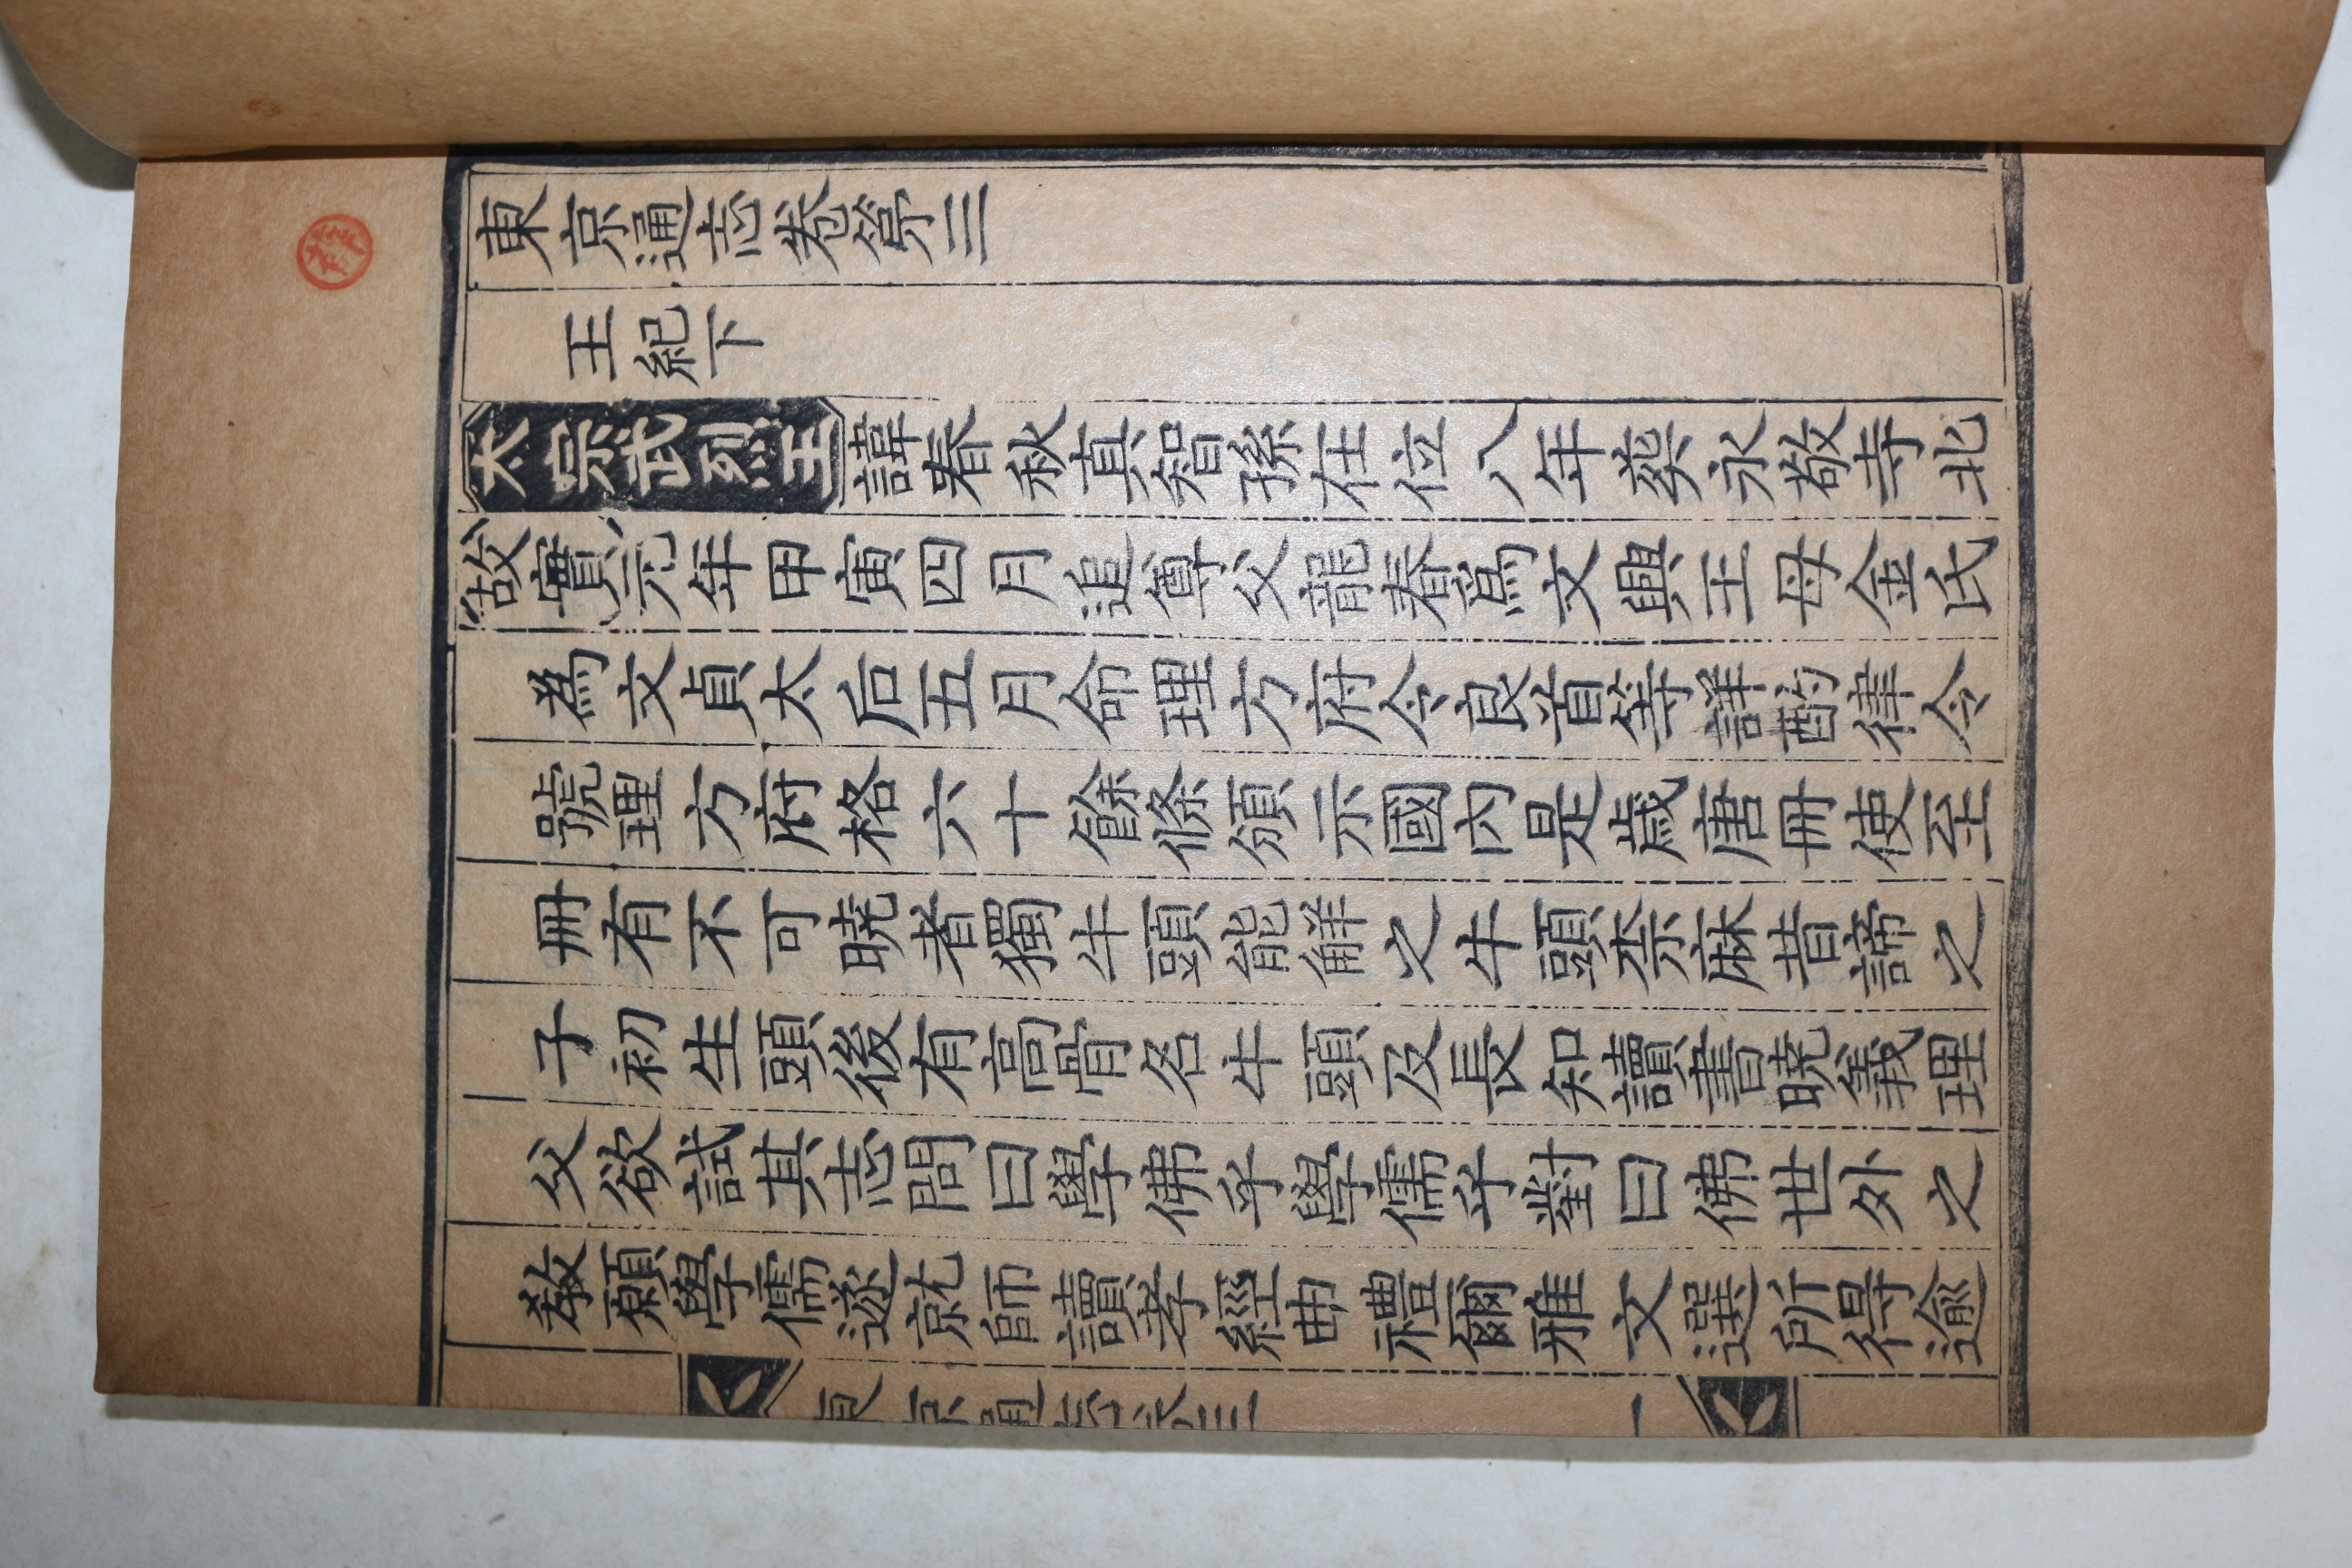 東京通志卷第三
王紀下
太宗武烈王諱春秋真智孫在位八年葬永敬寺北
故實元年甲寅四月追尊父龍春爲文興王母金氏
為文貞太后五月命理方府令良首等詳酌律令
號理方府格六十餘條頒示國內是歲唐冊使至
冊有不可曉者獨牛頭能觧之牛頭柰麻昔諦之
子初生頭後有高骨名牛頭及長知讀書曉義理
父欲試其志問曰學佛乎學儒乎對曰佛世外之
敎願學儒遂就師讀孝經曲禮爾雅文選所得逾
東京通志卷三
一